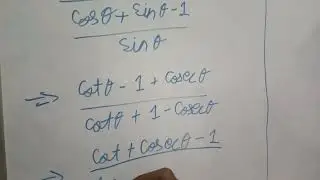 cosθ + sinθ - 1
sinθ
⇒ cotθ - 1 + cosecθ
cotθ + 1 - cosecθ
⇒ cot + cosecθ - 1